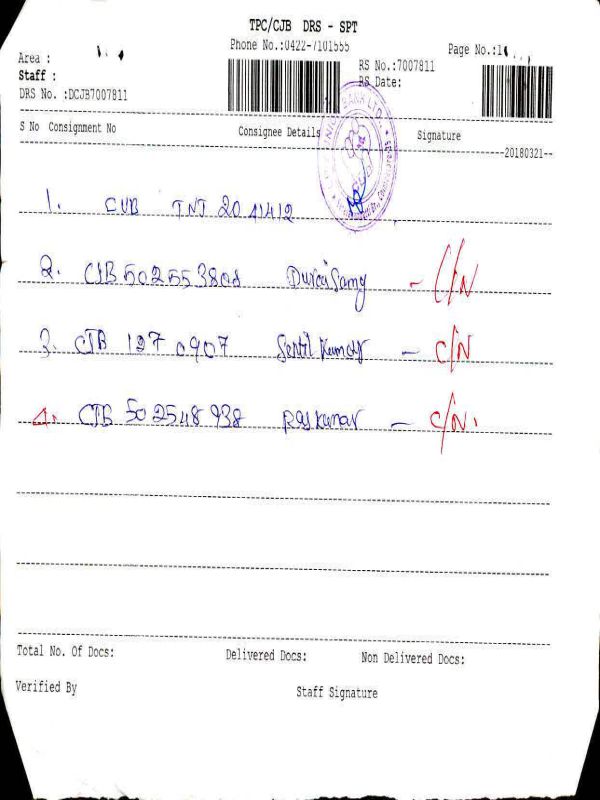 TPC/CJB DRS - SPT
Phone No.:0422-7101555
Page No.:1
Area :
RS No.:7007811
Staff :
RS Date:
DRS No. :DCJB7007811
S No Consignment No Consignee Details Signature
20180321
1. CUB TNT 2041412
2. CJB 502553808 Duraisamy - C/N
3. CJB 1270907 Sentil Kumar - C/N
4. CJB 502548938 Rajkumar - C/N.
Total No. Of Docs: Delivered Docs: Non Delivered Docs:
Verified By Staff Signature